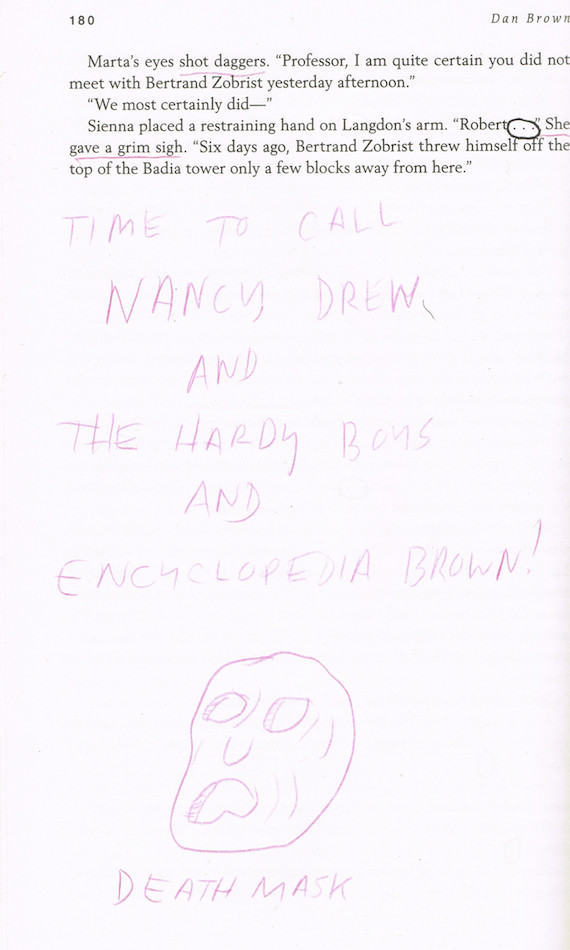 180
Dan Brown
Marta’s eyes shot daggers. “Professor, I am quite certain you did not
meet with Bertrand Zobrist yesterday afternoon.”
“We most certainly did—”
Sienna placed a restraining hand on Langdon’s arm. “Robert . . .” She
gave a grim sigh. “Six days ago, Bertrand Zobrist threw himself off the
top of the Badia tower only a few blocks away from here.”
TIME TO CALL
NANCY DREW
AND
THE HARDY BOYS
AND
ENCYCLOPEDIA BROWN!
DEATH MASK